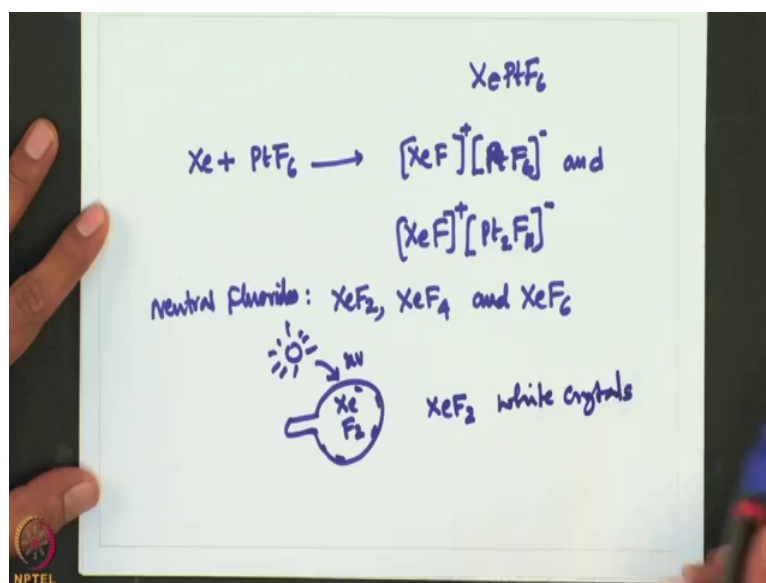 XePtF₆
Xe + PtF₆ ⟶ [XeF]⁺[PtF₆]⁻ and
[XeF]⁺[Pt₂F₁₁]⁻
neutral fluorides: XeF₂, XeF₄ and XeF₆
uv
Xe
F₂
XeF₂ white crystals
NPTEL